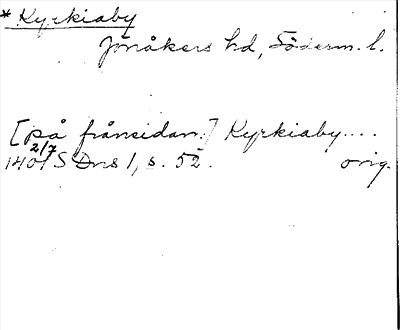 * Kyrkiaby
Jönåkers hd, Söderm. l.
[på frånsidan:] Kyrkiaby....
2/7
1401 SDns 1, s. 52. orig.